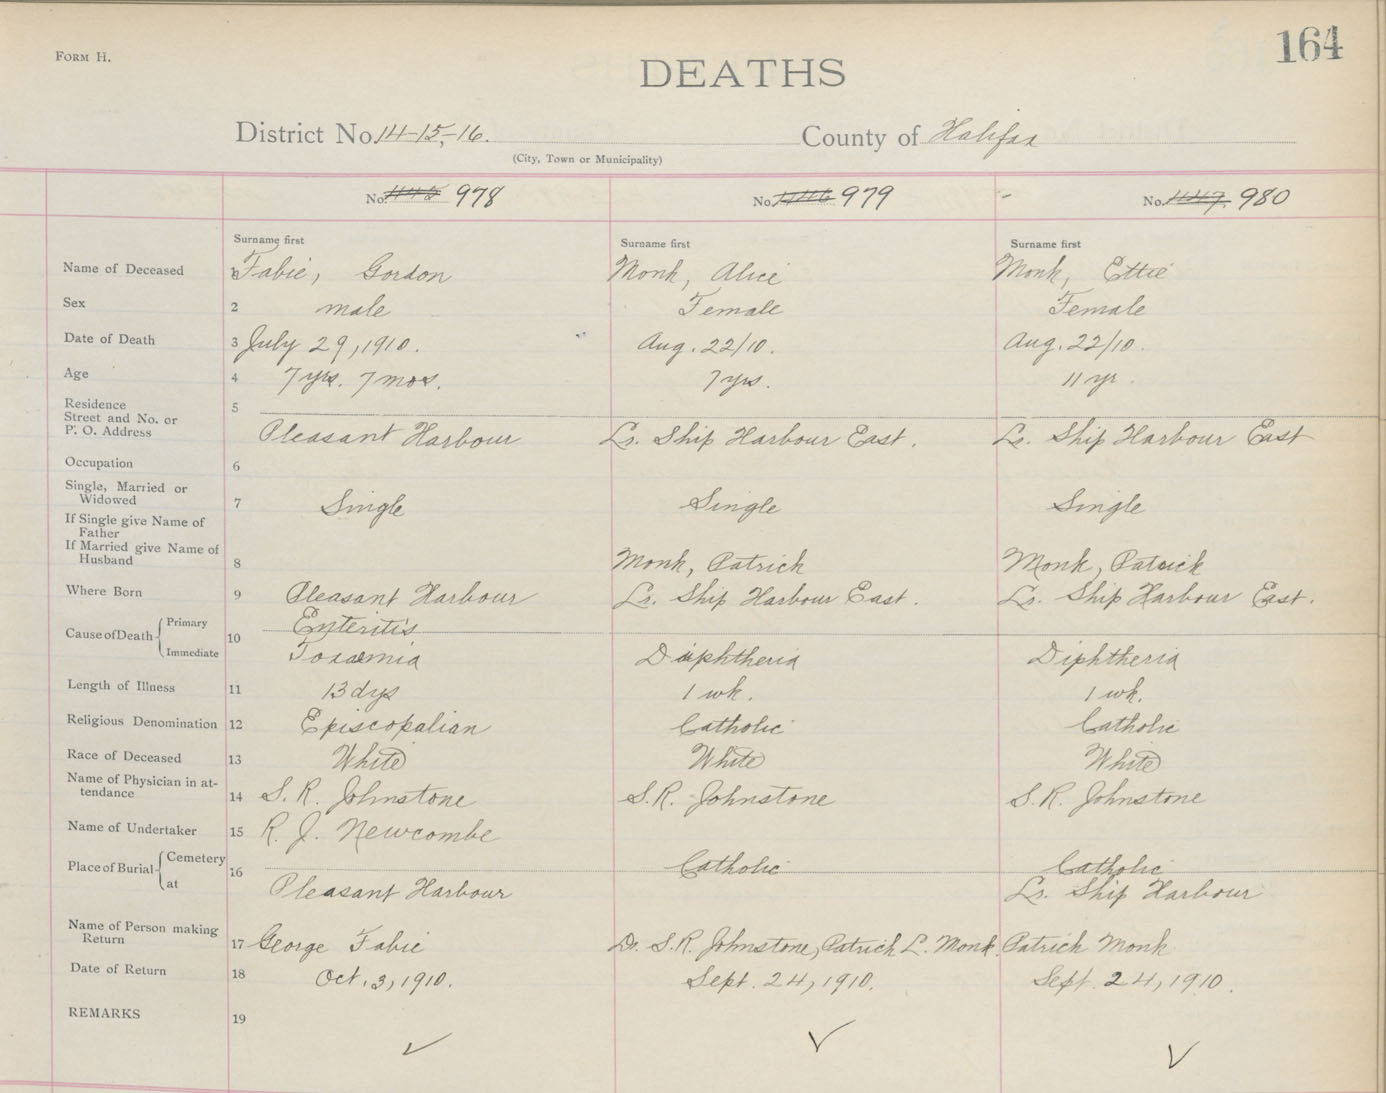 FORM H.
164
DEATHS
District No. 14-15,-16. County of Halifax
(City, Town or Municipality)
No. 445 978 No. 446 979 No. 447. 980
Surname first Surname first Surname first
Name of Deceased 1 Fabie, Gordon Monk, Alice Monk, Ettie
Sex 2 male Female Female
Date of Death 3 July 29, 1910. Aug. 22/10. Aug. 22/10.
Age 4 7 yrs. 7 mos. 7 yrs. 11 yr.
Residence 5
Street and No. or
P. O. Address Pleasant Harbour Lr. Ship Harbour East. Lr. Ship Harbour East
Occupation 6
Single, Married or
Widowed 7 Single Single Single
If Single give Name of
Father
If Married give Name of
Husband 8 Monk, Patrick Monk, Patrick
Where Born 9 Pleasant Harbour Lr. Ship Harbour East. Lr. Ship Harbour East.
Cause of Death Primary 10 Enteritis
Immediate Toxaemia Diphtheria Diphtheria
Length of Illness 11 13 dys 1 wk. 1 wk.
Religious Denomination 12 Episcopalian Catholic Catholic
Race of Deceased 13 White White White
Name of Physician in at-
tendance 14 S. R. Johnstone S. R. Johnstone S. R. Johnstone
Name of Undertaker 15 R. J. Newcombe
Place of Burial Cemetery 16 Catholic Catholic
at Pleasant Harbour Lr. Ship Harbour
Name of Person making
Return 17 George Fabie Dr. S. R. Johnstone, Patrick L. Monk. Patrick Monk
Date of Return 18 Oct. 3, 1910. Sept. 24, 1910. Sept. 24, 1910.
REMARKS 19